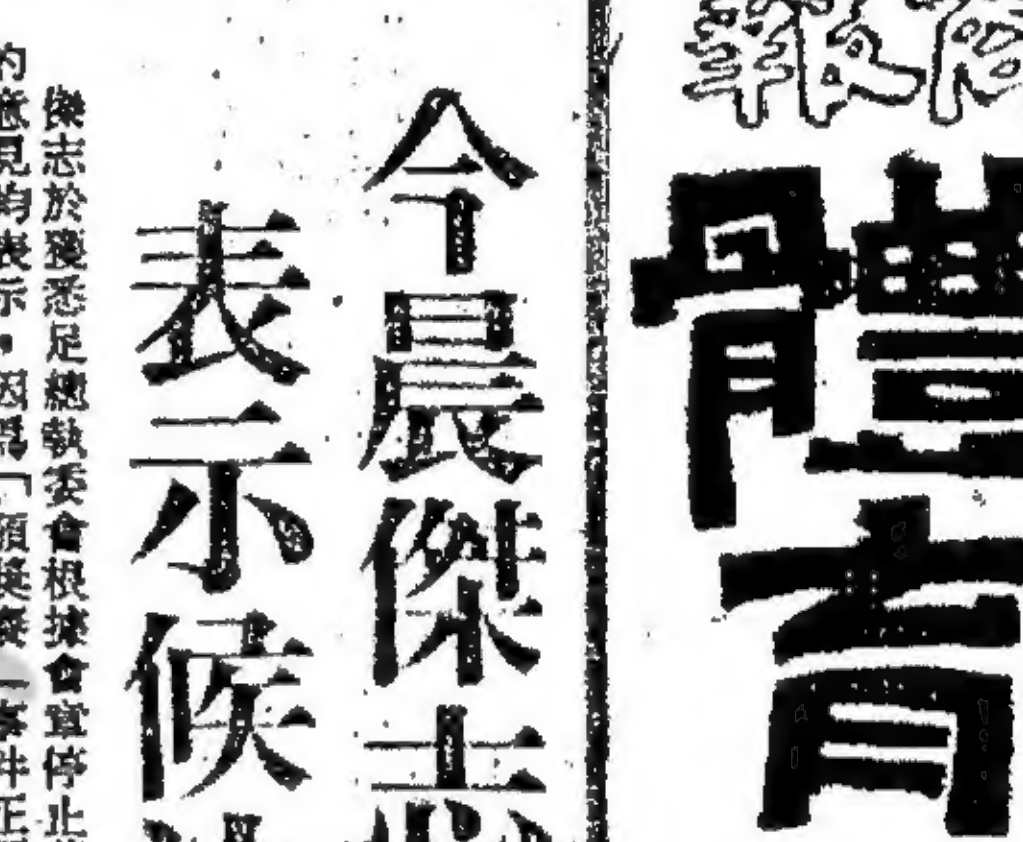 報
體育
今晨傑志
表示候
傑志於獲悉足總執委會根據會章停止
的意見均表示，因為「頒獎